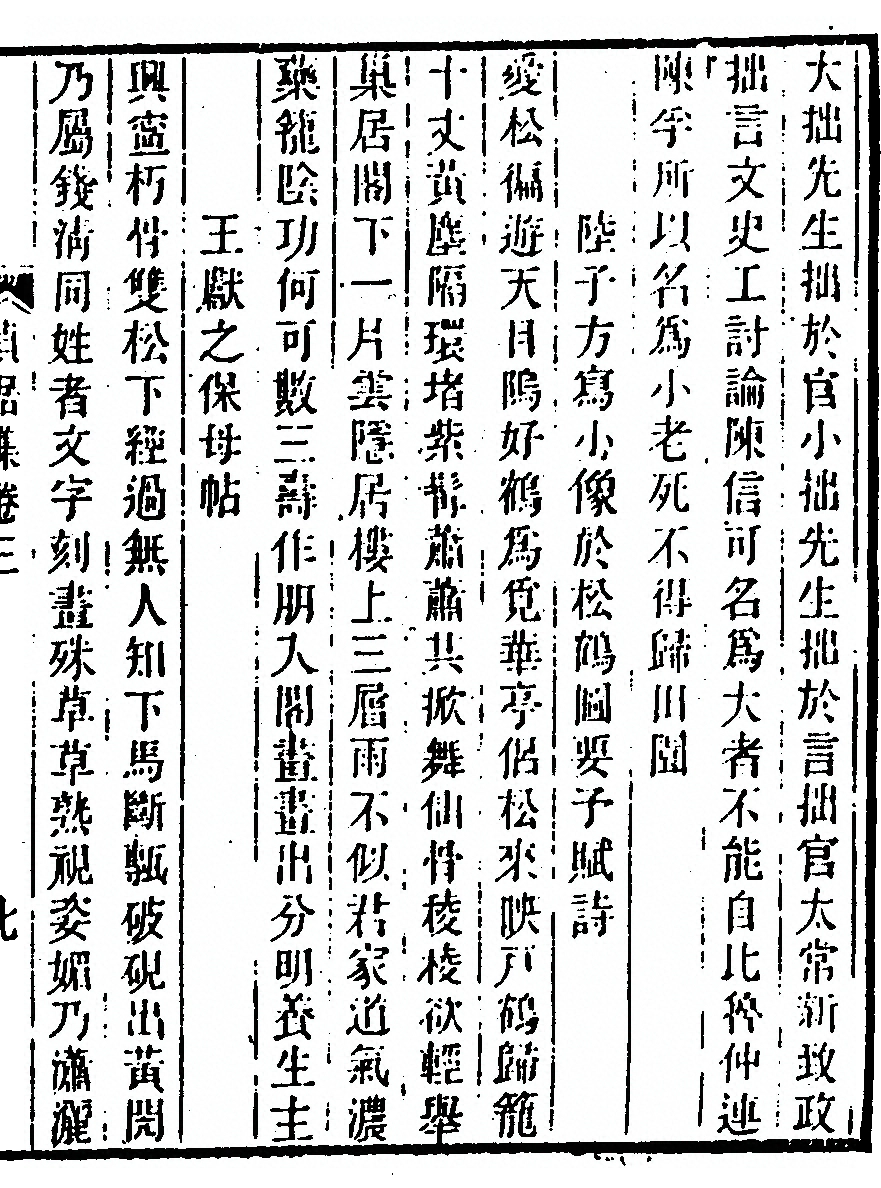 大拙先生拙於官小拙先生拙於言拙官太常新致政
拙言文史工討論陳信可名為大者不能自比魯仲連
陳孚所以名為小老死不得歸田園
陸子方寫小像於松鶴圖要予賦詩
愛松徧遊天目塢好鶴為覓華亭侶松來映戸鶴歸籠
十丈黄塵隔環堵紫髯蕭蕭其掀舞仙骨稜稜欲輕舉
巢居閣下一片雲隱居樓上三層雨不似君家道氣濃
藥籠陰功何可數三壽作朋入閣畫畫出分明養生主
王獻之保母帖
興寧朽骨雙松下經過無人知下馬斷甎破硯出黄閍
乃屬錢清同姓者文字刻畫殊草草熟視姿媚乃瀟灑
集卷三